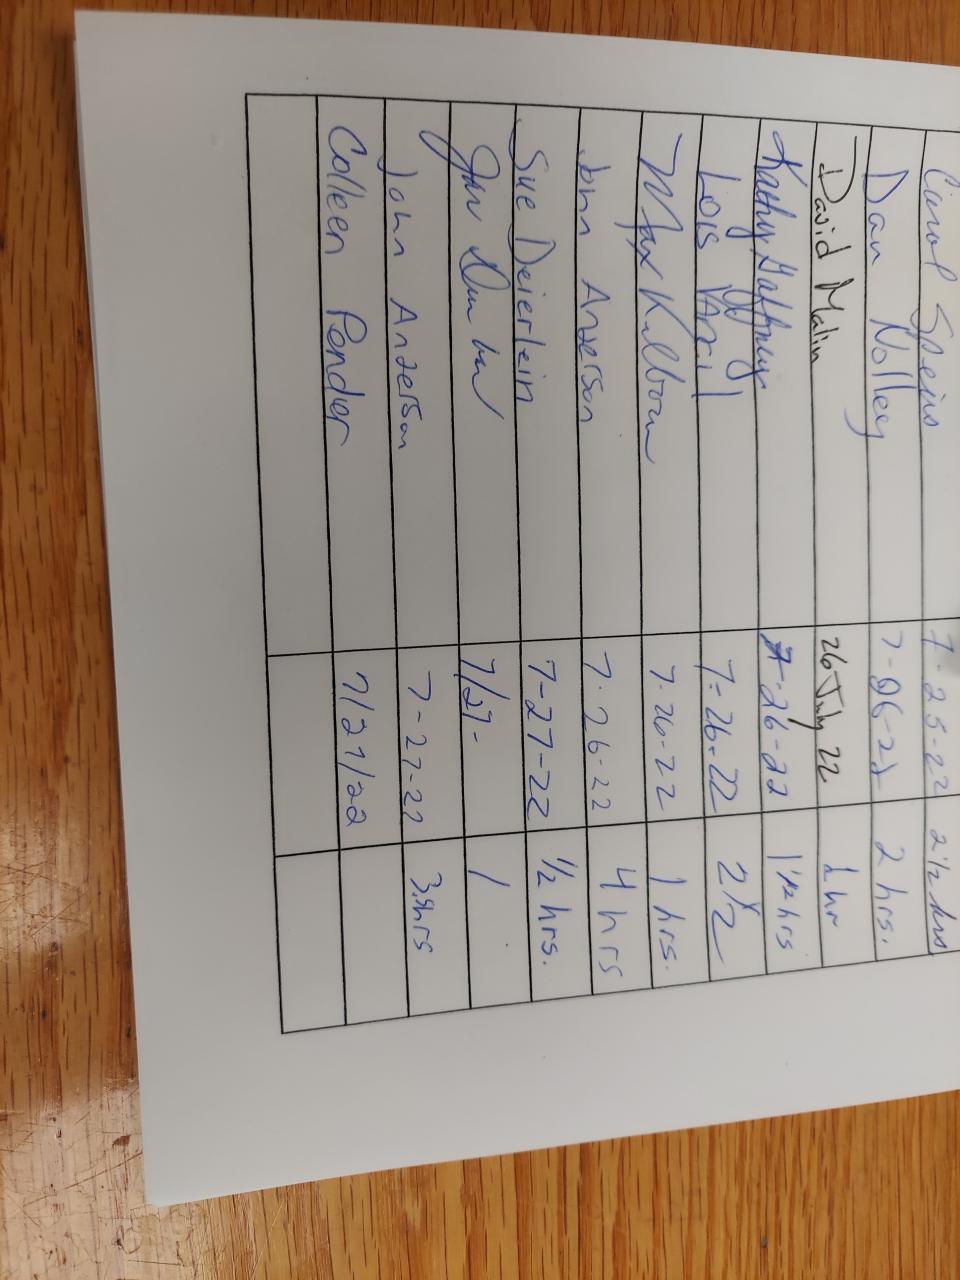 Carol Speirs 7-25-22 2 1/2 hrs
Dan Nolley 7-26-22 2 hrs.
David Malin 26 July 22 1 hr
Kathy Gaffney 7-26-22 1 1/2 hrs
Lois 7-26-22 2 1/2
Max Kilbourn 7-26-22 1 hrs.
John Anderson 7-26-22 4 hrs
Sue Deierlein 7-27-22 1/2 hrs.
7/27- 1
John Anderson 7-27-22 3.5hrs
Colleen Pender 7/27/22